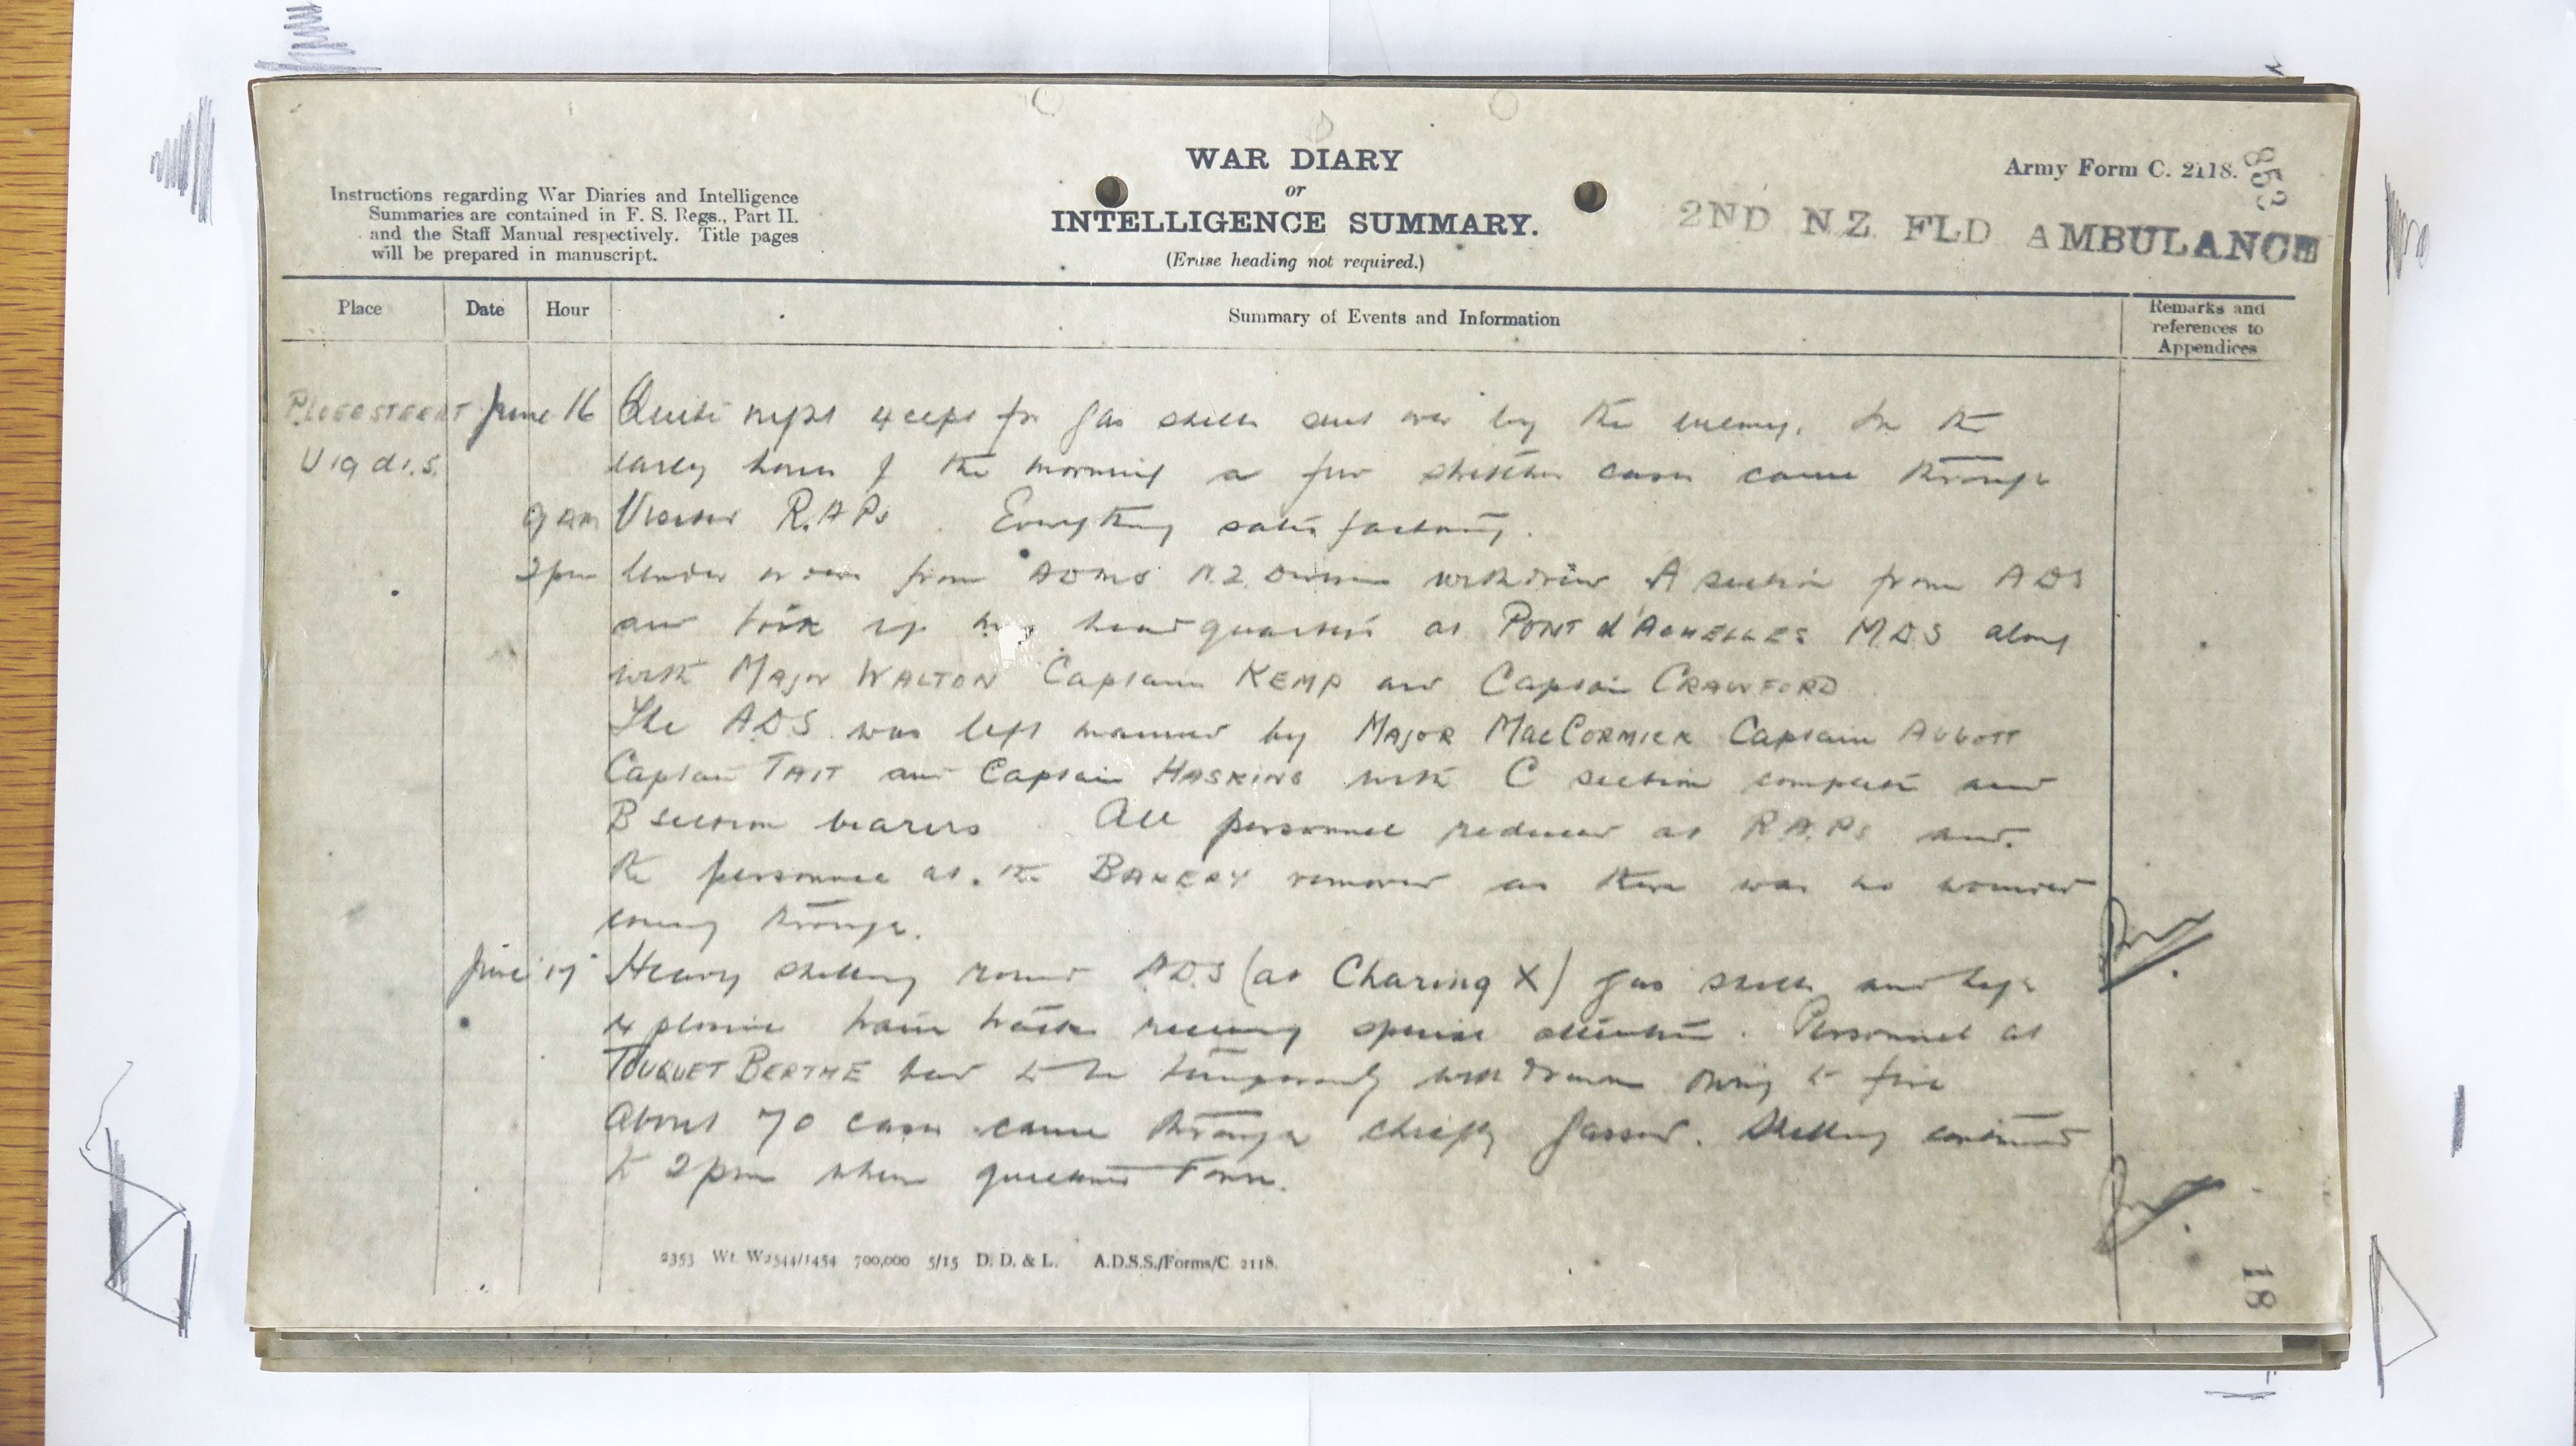 WAR DIARY
or
INTELLIGENCE SUMMARY.
(Erase heading not required.)
Instructions regarding War Diaries and Intelligence
Summaries are contained in F. S. Regs., Part II.
and the Staff Manual respectively. Title pages
will be prepared in manuscript.
Army Form C. 2118.
853
2ND N.Z. FLD AMBULANCE
Place Date Hour Summary of Events and Information Remarks and
references to
Appendices
PLOEGSTEERT June 16 Quiet night except for gas shells sent over by the enemy. In the
U 19 d 1.5. early hours of the morning a few stretcher cases came through
9 AM Visited R.A.Ps. Everything satisfactory.
2pm Under orders from ADMS N.Z. Division withdrew A section from ADS
and took up headquarters at PONT d'ACHELLES M.D.S along
with MAJOR WALTON Captain KEMP and Captain CRAWFORD.
The A.D.S. was left manned by MAJOR MacCORMICK Captain ABBOTT
Captain TAIT and Captain HASKINS with C section complete and
B section bearers. All personnel reduced at R.A.Ps and
the personnel at the BAKERY removed as there was no wounded
coming through.
June 17 Heavy shelling round A.D.S (at Charing X) gas shells and high
explosive receiving special attention. Personnel at
TOUQUET BERTHE had to be temporarily withdrawn owing to fire
About 70 cases came through chiefly gassed. Shelling continued
to 2pm when quietened down.
2353 Wt. W2544/1454 700,000 5/15 D. D. & L. A.D.S.S./Forms/C. 2118.
18